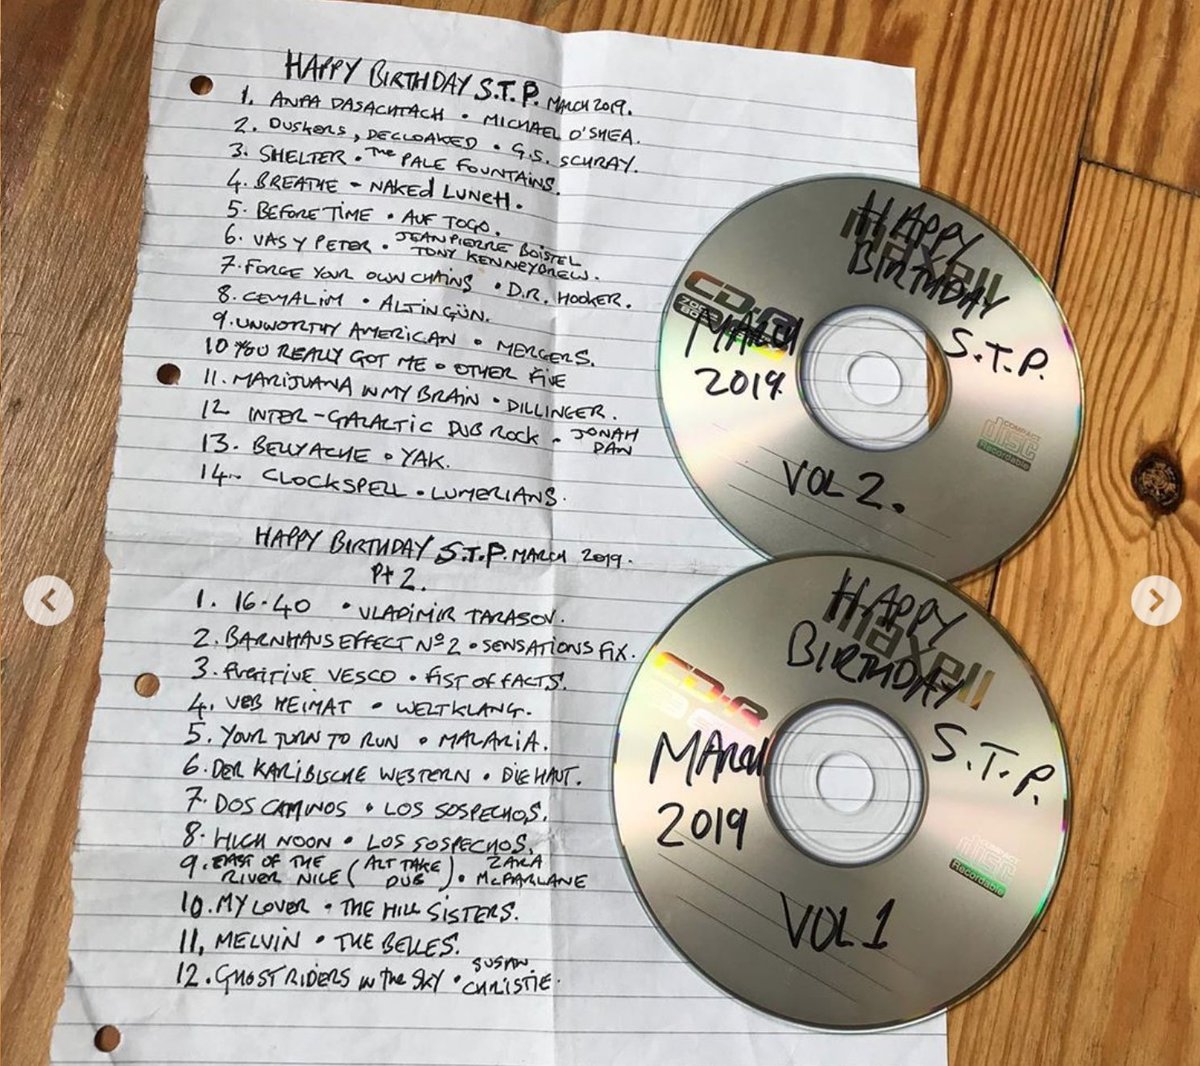 HAPPY BIRTHDAY S.T.P. MARCH 2019.
1. ANFA DASACHTACH • MICHAEL O'SHEA.
2. DUSKERS, DECLOAKED • G.S. SCHRAY.
3. SHELTER • THE PALE FOUNTAINS.
4. BREATHE - NAKED LUNCH.
5. BEFORE TIME • AUF TOGO.
6. VAS Y PETER • JEAN PIERRE BOISTEL
TONY KENNEYBREW.
7. FORGE YOUR OWN CHAINS • D.R. HOOKER.
8. CEMALIM • ALTIN GÜN.
9. UNWORTHY AMERICAN • MERCERS.
10 YOU REALLY GOT ME • OTHER FIVE
11. MARIJUANA IN MY BRAIN • DILLINGER.
12 INTER-GALACTIC DUB ROCK • JONAH
DAN
13. BELLYACHE • YAK.
14. CLOCKSPELL • LUMERIANS.
HAPPY BIRTHDAY S.T.P. MARCH 2019.
Pt 2.
1. 16-40 • VLADIMIR TARASOV.
2. BARNHAUS EFFECT Nº 2 • SENSATIONS FIX.
3. FUGITIVE VESCO • FIST OF FACTS.
4. VEB HEIMAT • WELTKLANG.
5. YOUR TURN TO RUN • MALARIA.
6. DER KARIBISCHE WESTERN • DIE HAUT.
7. DOS CAMINOS • LOS SOSPECHOS.
8. HIGH NOON • LOS SOSPECHOS.
9. EAST OF THE RIVER NILE (ALT TAKE DUB) • ZARA MCFARLANE
10. MY LOVER • THE HILL SISTERS.
11, MELVIN • THE BELLES.
12. GHOST RIDERS IN THE SKY • SUSAN
CHRISTIE.
maxell
HAPPY
BIRTHDAY
S.T.P.
CD-R
MARCH
2019.
COMPACT
disc
Recordable
VOL 2.
maxell
HAPPY
BIRTHDAY
S.T.P.
CD-R
MARCH
2019
COMPACT
disc
Recordable
VOL 1